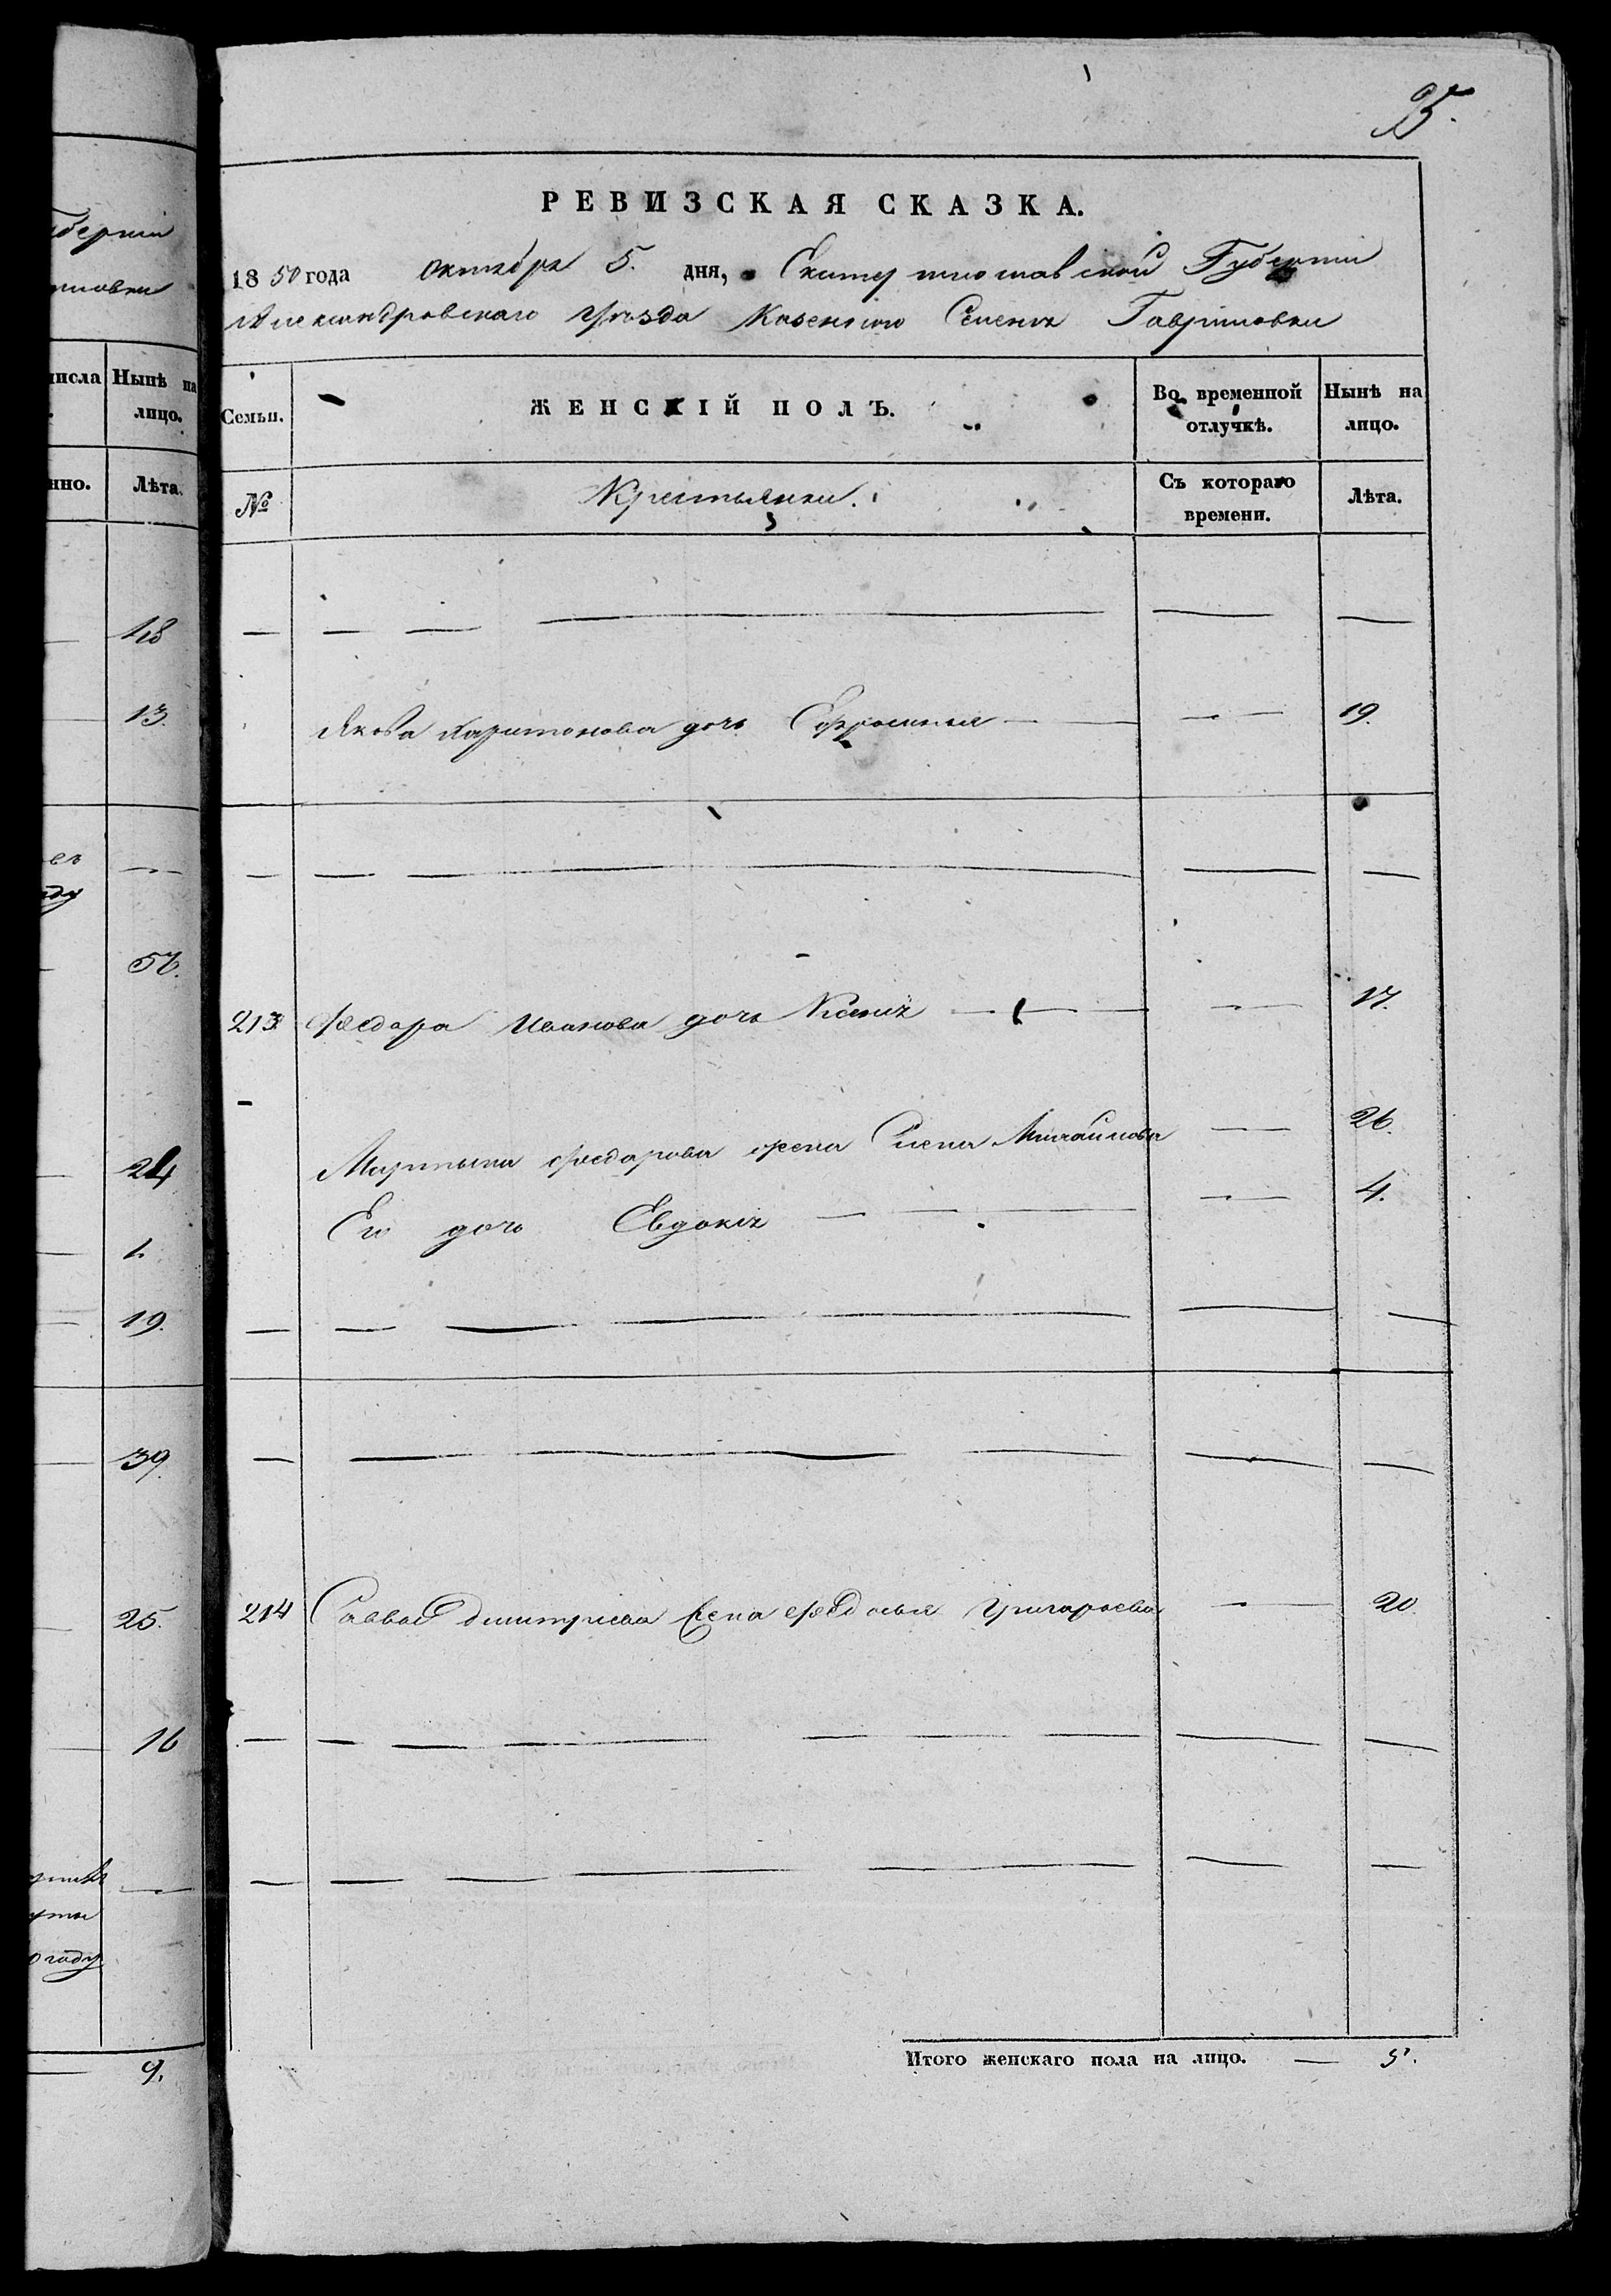 95.
РЕВИЗСКАЯ СКАЗКА.
1850 года октября 5. дня, Екатеринославской Губернии
Александровскаго уѣзда Казеннаго Селения Гавриловки
Семьи. ЖЕНСКІЙ ПОЛЪ. Во временной отлучкѣ. Нынѣ на лицо.
№ Крестьянки. Съ котораго времени. Лѣта.
Якова Харитонова дочь Ефросинья — — 19.
213 Федора Иванова дочь Ксения — — 17.
Мартына Федорова жена Елена Михайлова — 26.
Его дочь Евдокия — — 4.
214 Саввы Дмитриева жена Федосья Григорьева — 20
Итого женскаго пола на лицо. — 5.
губерніи
числа Нынѣ на лицо.
Лѣта.
18
13.
57.
24
1.
19.
39.
25.
16
году
9.